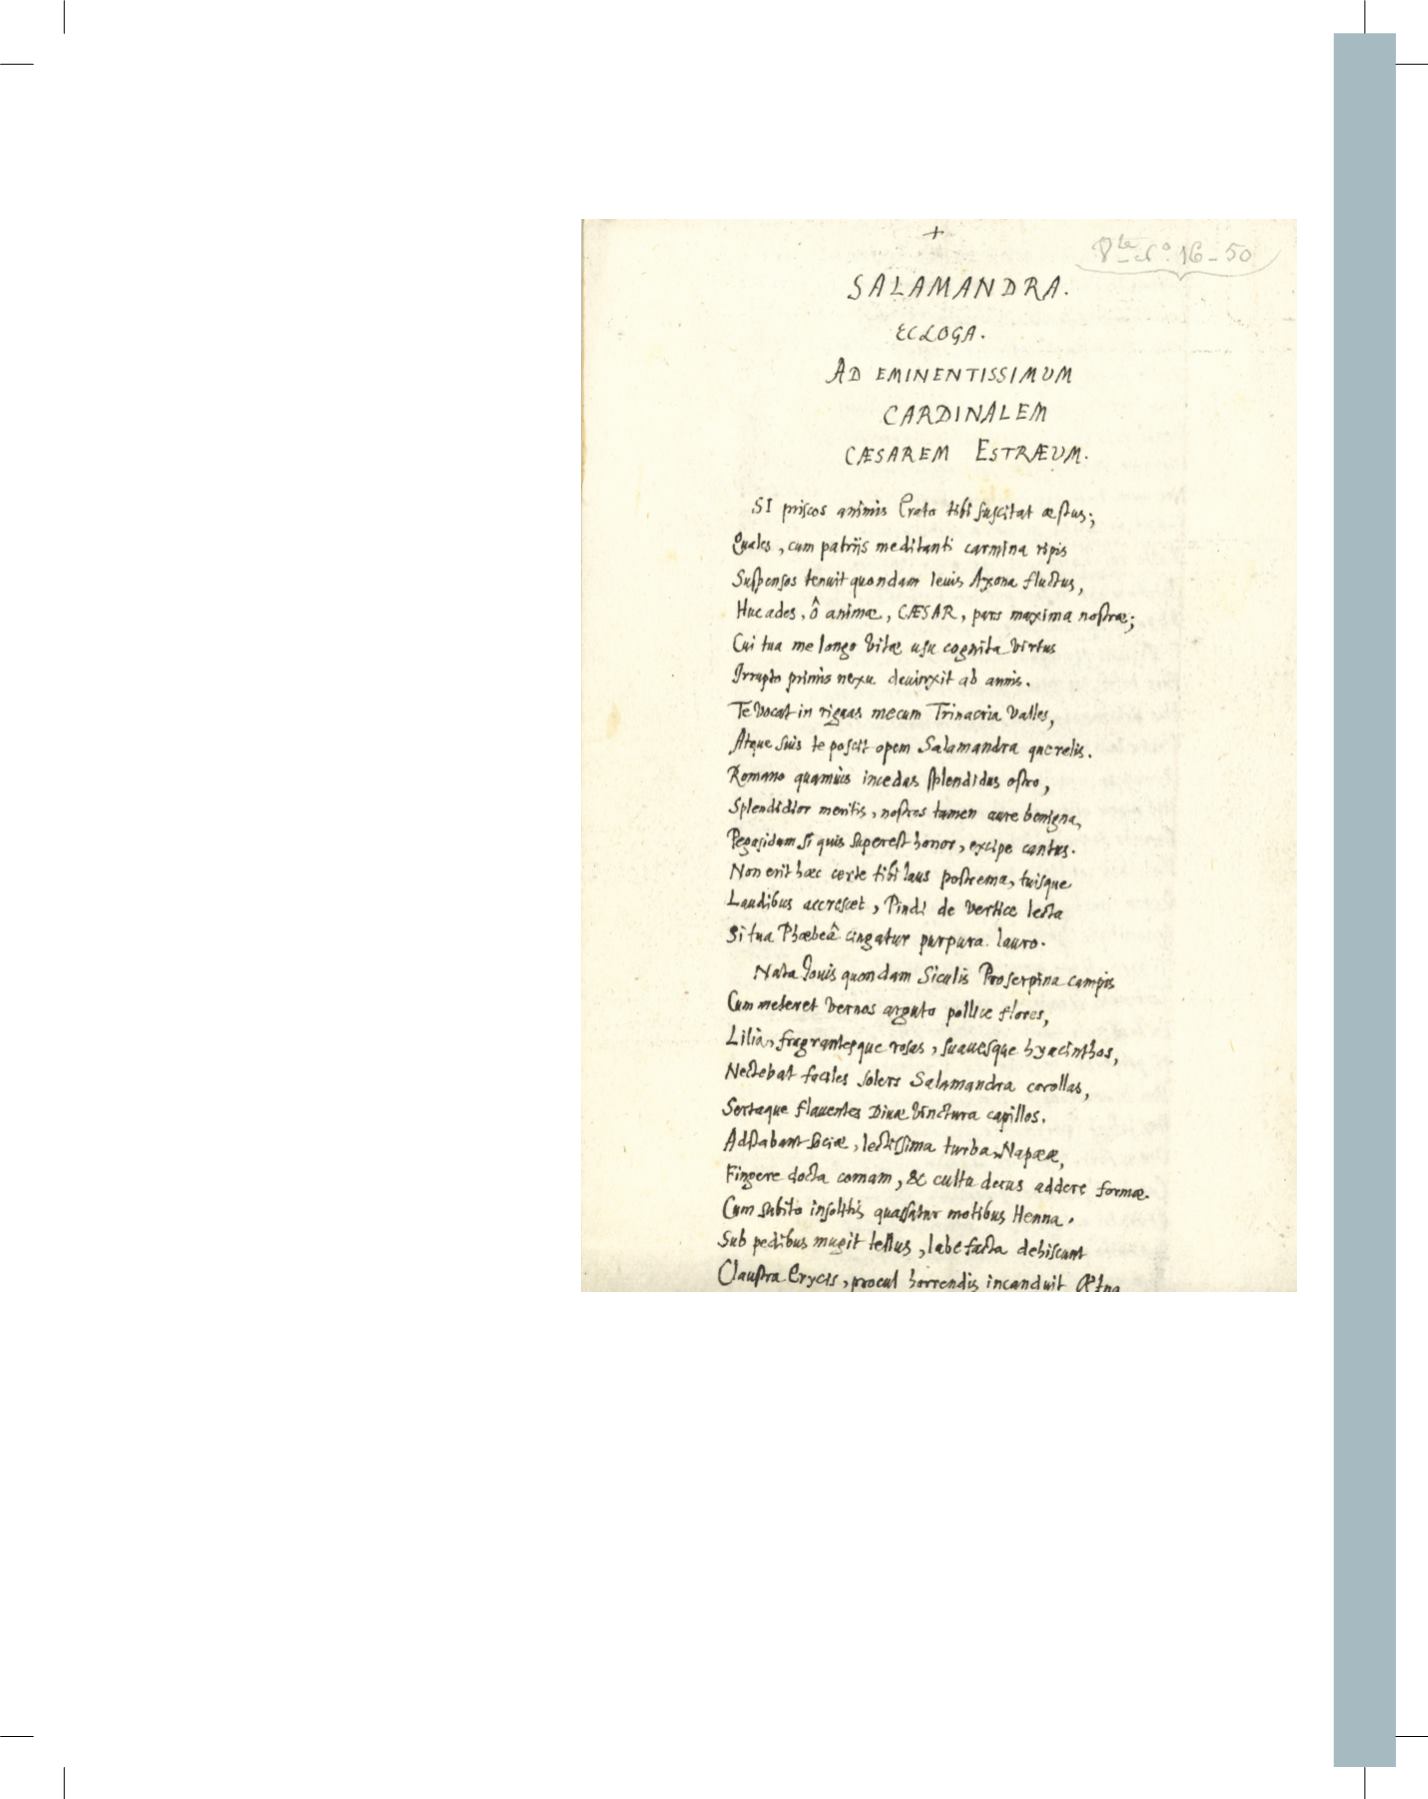 +
16-50
SALAMANDRA.
ECLOGA.
AD EMINENTISSIMUM
CARDINALEM
CÆSAREM ESTRÆUM.
SI priscos animis Erato tibi suscitat æstus;
Quales, cum patrijs meditanti carmina ripis
Suspensos tenuit quondam levis Axona fluctus,
Huc ades, ô animæ, CÆSAR, pars maxima nostræ;
Cui tua me longo vitæ usu cognita virtus
Irrupto primis nexu devinxit ab annis.
Te vocat in riguas mecum Trinacria valles,
Atque suis te poscit opem Salamandra querelis.
Romano quamuis incedas splendidus ostro,
Splendidior meritis, nostros tamen aure benigna,
Pegasidum si quis superest honor, excipe cantus.
Non erit hæc certe tibi laus postrema, tuisque
Laudibus accrescet, Pindi de vertice lecta
Si tua Phæbeâ cingatur purpura lauro.
Nata Jouis quondam Siculis Proserpina campis
Cum meteret vernos arguto pollice flores,
Lilia, fragrantesque rosas, suauesque hyacinthos,
Nectebat faciles solers Salamandra corollas,
Sertaque flauentes Diuæ vinctura capillos.
Adstabant sociæ, lectissima turba, Napææ,
Fingere docta comam, & cultu decus addere formæ.
Cum subito insolitis quassatur motibus Henna.
Sub pedibus mugit tellus, labefacta dehiscunt
Claustra Erycis, procul horrendis incanduit Ætna